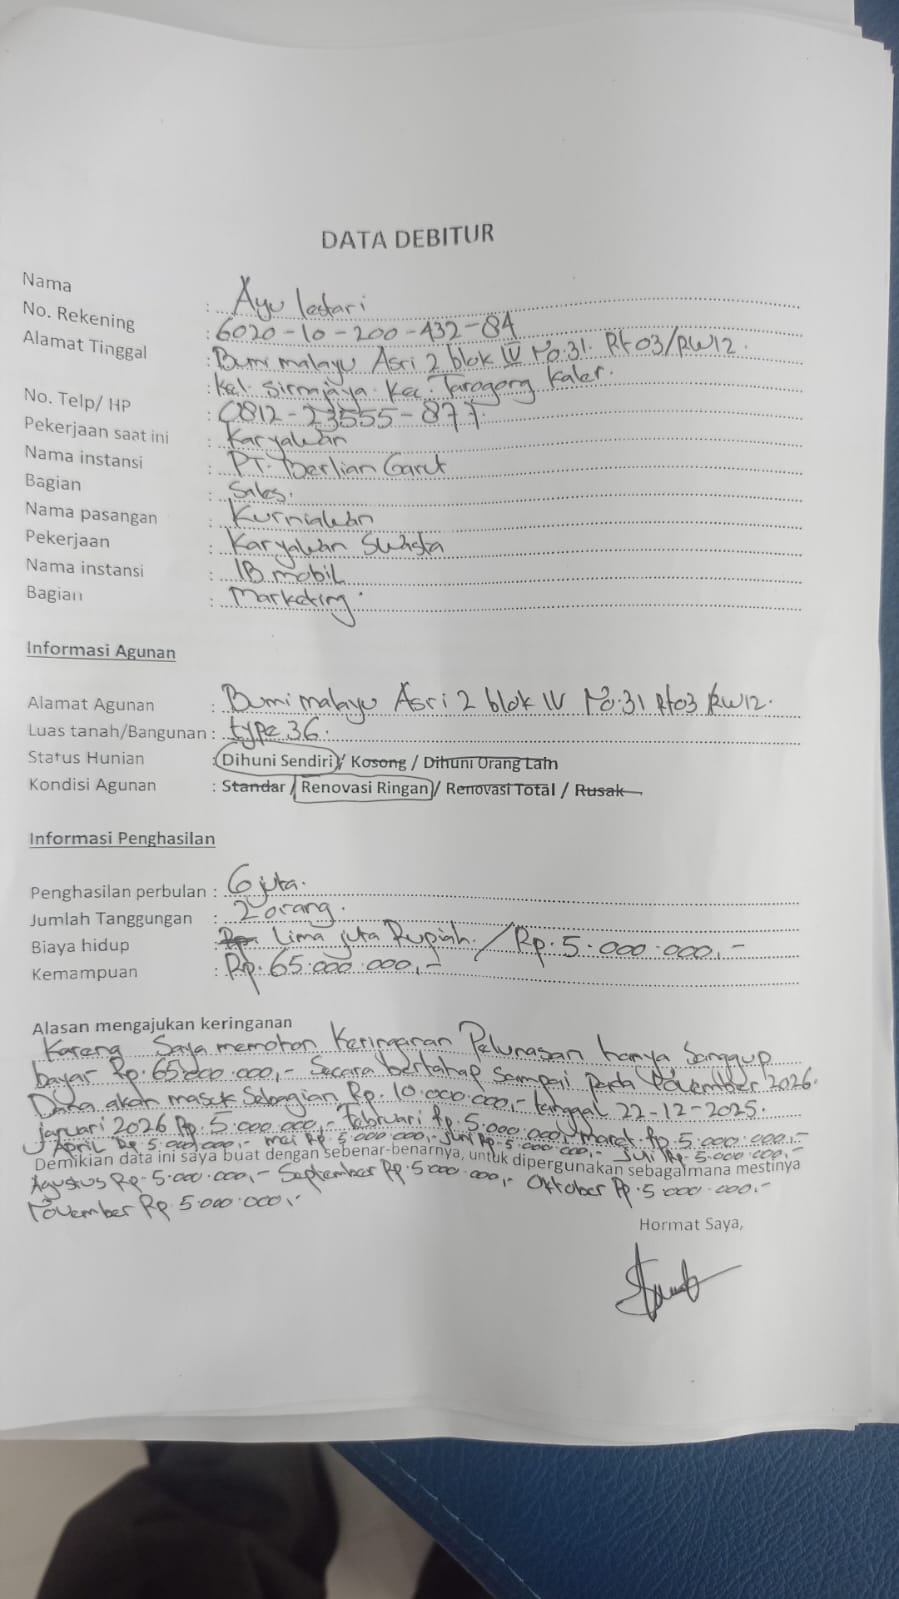 DATA DEBITUR
Nama : Ayu lestari
No. Rekening : 6020-10-200-432-84
Alamat Tinggal : Bumi malayu Asri 2 blok IV No.31. Rt 03/RW12.
: kel. Sirnajaya. Kec. Tarogong Kaler.
No. Telp/ HP : 0812-23555-877.
Pekerjaan saat ini : Karyawan
Nama instansi : PT. Berlian Garut
Bagian : Sales.
Nama pasangan : Kurniawan
Pekerjaan : Karyawan Swasta
Nama instansi : IB mobil
Bagian : Marketing.
Informasi Agunan
Alamat Agunan : Bumi malayu Asri 2 blok IV No.31 Rt03 RW12.
Luas tanah/Bangunan : type 36.
Status Hunian : Dihuni Sendiri / Kosong / Dihuni Orang Lain
Kondisi Agunan : Standar / Renovasi Ringan / Renovasi Total / Rusak
Informasi Penghasilan
Penghasilan perbulan : 6 juta.
Jumlah Tanggungan : 2 orang.
Biaya hidup : Rp. Lima juta Rupiah. / Rp. 5.000.000,-
Kemampuan : Rp. 65.000.000,-
Alasan mengajukan keringanan
Karena Saya memohon Keringanan Pelunasan hanya Sanggup
bayar Rp. 65.000.000,- Secara bertahap Sampai pada November 2026.
Dana akan masuk Sebagian Rp. 10.000.000,- tanggal 22-12-2025.
Januari 2026 Rp. 5.000.000,- Februari Rp. 5.000.000,- maret Rp. 5.000.000,-
April Rp 5.000.000,- mei Rp 5.000.000,- Juni Rp. 5.000.000,- Juli Rp. 5.000.000,-
Demikian data ini saya buat dengan sebenar-benarnya, untuk dipergunakan sebagaimana mestinya
Agustus Rp. 5.000.000,- September Rp. 5.000.000,- Oktober Rp. 5.000.000,-
November Rp. 5.000.000,-
Hormat Saya,